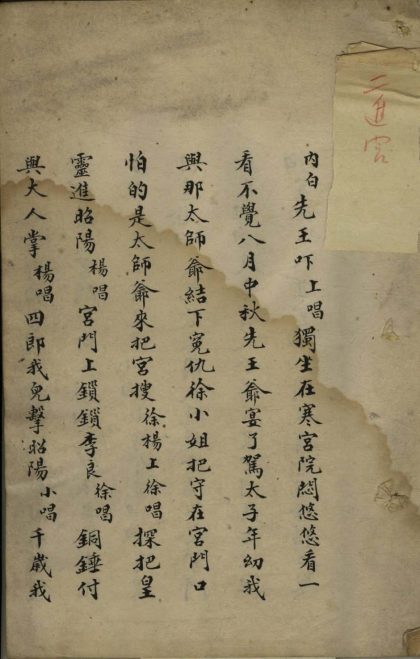 二進宮
內白先王吓上唱獨坐在寒宮院悶悠悠看一
看不覺八月中秋先王爺宴了駕太子年幼我
與那太師爺結下寃仇徐小姐把守在宮門口
怕的是太師爺來把宮搜徐楊上徐唱探把皇
靈進昭陽楊唱宮門上鎖鎖李良徐唱銅錘付
與大人掌楊唱四郎我兒擊昭陽小唱千歲我